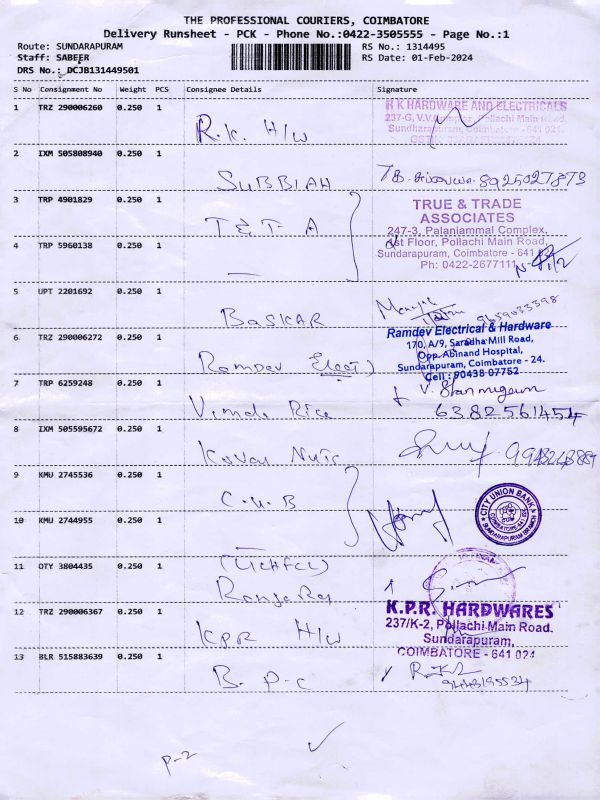 THE PROFESSIONAL COURIERS, COIMBATORE
Delivery Runsheet - PCK - Phone No.:0422-3505555 - Page No.:1
Route: SUNDARAPURAM
RS No.: 1314495
Staff: SABEER
RS Date: 01-Feb-2024
DRS No.: DCJB131449501
S No Consignment No Weight PCS Consignee Details Signature
1 TRZ 290006260 0.250 1 R.K. H/W
R K HARDWARE AND ELECTRICALS
237-G, V.V. Pollachi Main Road,
Sundharapuram, Coimbatore - 641 024.
2 IXM 505808940 0.250 1 SUBBIAH 8925027873
3 TRP 4901829 0.250 1 T & T A
TRUE & TRADE
ASSOCIATES
247-3, Palaniammal Complex,
1st Floor, Pollachi Main Road,
Sundarapuram, Coimbatore - 641
Ph: 0422-2677111
4 TRP 5960138 0.250 1
5 UPT 2201692 0.250 1 BASKAR 9659033398
6 TRZ 290006272 0.250 1 Ramdev Elect)
Ramdev Electrical & Hardware
170, A/9, Saradha Mill Road,
Opp. Abinand Hospital,
Sundarapuram, Coimbatore - 24.
Cell : 90438 07752
7 TRP 6259248 0.250 1 Vimala Rice V. Shanmugam
6382561454
8 IXM 505595672 0.250 1 Kovai Nuts
9 KMU 2745536 0.250 1 C.U.B
CITY UNION BANK
SUNDARAPURAM BRANCH
10 KMU 2744955 0.250 1
11 OTY 3804435 0.250 1
12 TRZ 290006367 0.250 1 KPR H/W
K.P.R. HARDWARES
237/K-2, Pollachi Main Road.
Sundarapuram,
COIMBATORE - 641 024
13 BLR 515883639 0.250 1 B.P.C
9443195534
P-2